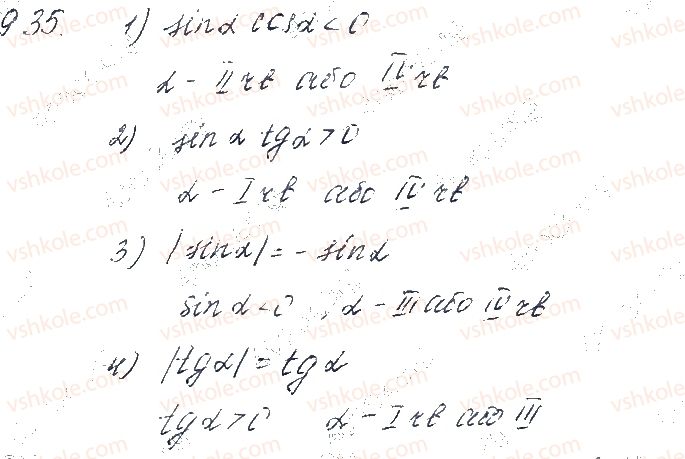 9 35. 1) sinα cosα < 0
α - II чв або IV чв
2) sinα tgα > 0
α - I чв або IV чв
3) |sinα| = - sinα
sinα < 0, α - III або IV чв
4) |tgα| = tgα
tgα > 0 α - I чв або III